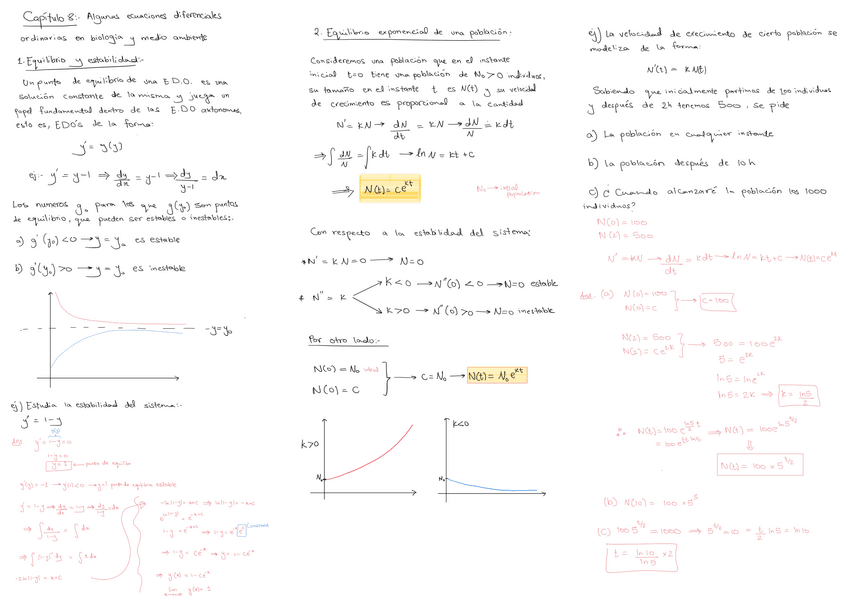 Capítulo 8:- Algunas ecuaciones diferenciales
ordinarias en biología y medio ambiente
1. Equilibrio y estabilidad:-
Un punto de equilibrio de una E.D.O. es una
solución constante de la misma y juega un
papel fundamental dentro de las E.D.O autónomas,
esto es, EDO's de la forma:
y' = g(y)
ej:- y' = y-1 ⇒ dy/dx = y-1 ⇒ dy/y-1 = dx
Los numeros y₀ para los que g(y₀) son puntos
de equilibrio, que pueden ser estables o inestables:.
a) g'(y₀) <0 → y = y₀ es estable
b) g'(y₀) >0 → y = y₀ es inestable
y=y₀
ej) Estudia la estabilidad del sistema:-
y' = 1-y
g(y)
y' = 1-y = 0
1-y=0
y=1 ← punto de equilibrio
g'(y) = -1 → g'(1)<0 → y=1 punto de equilibrio estable
y' = 1-y ⇒ dy/dx = 1-y ⇒ dy/1-y = dx
⇒ ∫ dy/1-y = ∫ dx
⇒ ∫ (1-y)⁻¹ dy = ∫ 1 dx
-ln(1-y) = x+C
-ln(1-y) = x+C ⇒ ln(1-y) = -x+C
e^ln(1-y) = e^-x+C
1-y = e^-x+C ⇒ 1-y = e^-x e^C constante
⇒ 1-y = Ce^-x ⇒ y = 1-Ce^-x
⇒ y(x) = 1-Ce^-x
lim y(x) = 1
2. Equilibrio exponencial de una población:
Consideremos una población que en el instante
inicial t=0 tiene una población de N₀>0 individuos,
su tamaño en el instante t es N(t) y su velocidad
de crecimiento es proporcional a la cantidad
N' = KN → dN/dt = KN → dN/N = Kdt
⇒ ∫ dN/N = ∫ K dt → ln N = Kt + C
⇒ N(t) = Ce^Kt
N₀ → initial population
Con respecto a la estabilidad del sistema:
* N' = K N = 0 → N=0
* N'' = K
K < 0 → N''(0) < 0 → N=0 estable
K > 0 → N''(0) > 0 → N=0 inestable
Por otro lado:-
N(0) = N₀ initial
N(0) = C
→ C = N₀ → N(t) = N₀ e^Kt
K>0
N₀
K<0
N₀
ej) La velocidad de crecimiento de cierto población se
modeliza de la forma:
N'(t) = K N(t)
Sabiendo que inicialmente partimos de 100 individuos
y después de 2h tenemos 500, se pide
a) La población en cualquier instante
b) la población después de 10 h
c) ¿ Cuando alcanzaré la población los 1000
individuos?
N(0) = 100
N(2) = 500
N' = KN → dN/dt = Kdt → ln N = Kt + C → N(t) = Ce^Kt
(a) N(0) = 100
N(0) = C
→ C=100
N(2) = 500
N(2) = Ce^2K
→ 500 = 100e^2K
5 = e^2K
ln5 = lne^2K
ln5 = 2K ⇒ K = ln5/2
N(t) = 100 e^ln5/2 t ⇒ N(t) = 100e^ln5^t/2
= 100 e^t/2 ln5
⇓
N(t) = 100 × 5^t/2
(b) N(10) = 100 × 5⁵
(c) 100 5^t/2 = 1000 ⇒ 5^t/2 = 10 = t/2 ln5 = ln10
t = ln10/ln5 × 2